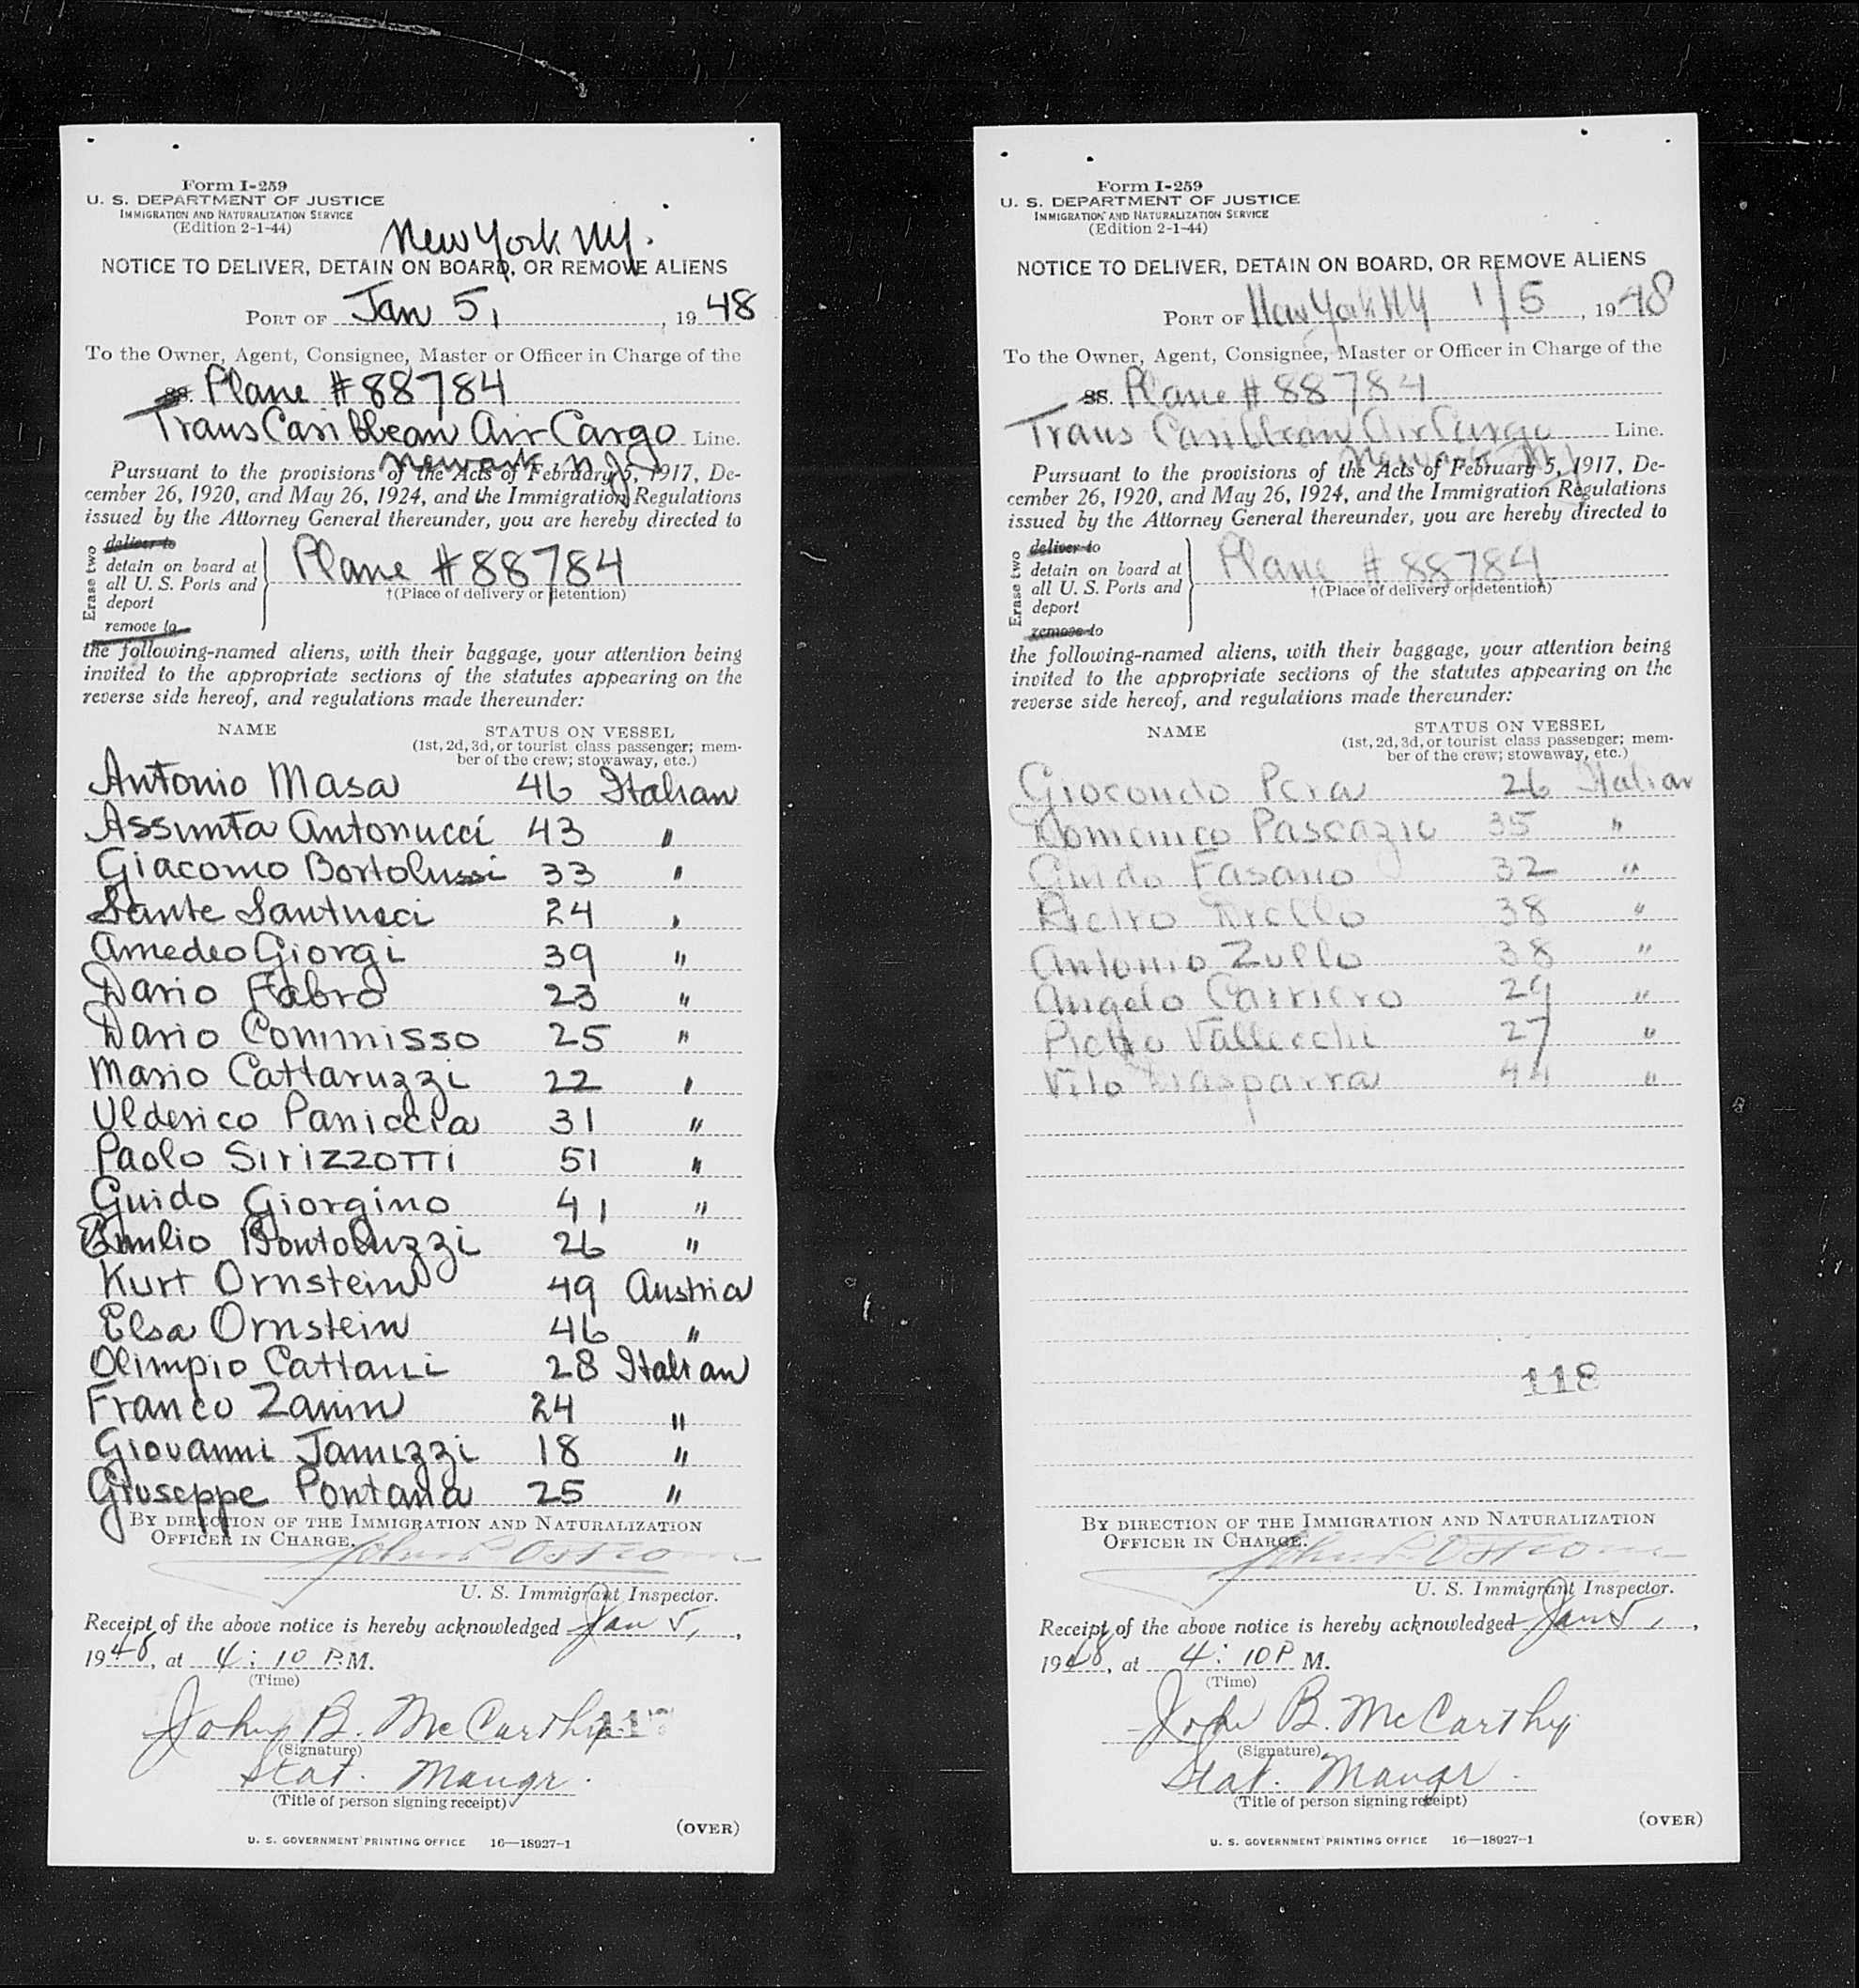 Form I-259
U. S. DEPARTMENT OF JUSTICE
IMMIGRATION AND NATURALIZATION SERVICE
(Edition 2-1-44)
New York NY.
NOTICE TO DELIVER, DETAIN ON BOARD, OR REMOVE ALIENS
PORT OF Jan 5, , 19 48
To the Owner, Agent, Consignee, Master or Officer in Charge of the
SS. Plane # 88784
Trans Caribbean Air Cargo Line.
Newark N.J.
Pursuant to the provisions of the Acts of February 5, 1917, De-
cember 26, 1920, and May 26, 1924, and the Immigration Regulations
issued by the Attorney General thereunder, you are hereby directed to
Erase two
deliver to
detain on board at
all U. S. Ports and
deport
remove to
Plane # 88784
†(Place of delivery or detention)
the following-named aliens, with their baggage, your attention being
invited to the appropriate sections of the statutes appearing on the
reverse side hereof, and regulations made thereunder:
NAME STATUS ON VESSEL
(1st, 2d, 3d, or tourist class passenger; mem-
ber of the crew; stowaway, etc.)
Antonio Masa 46 Italian
Assunta Antonucci 43 "
Giacomo Bortolussi 33 "
Sante Santucci 24 "
Amedeo Giorgi 39 "
Dario Fabro 23 "
Dario Commisso 25 "
Mario Cattaruzzi 22 "
Ulderico Paniccia 31 "
Paolo Sirizzotti 51 "
Guido Giorgino 41 "
Emilio Bortoluzzi 26 "
Kurt Ornstein 49 Austria
Elsa Ornstein 46 "
Olimpio Cattani 28 Italian
Franco Zanin 24 "
Giovanni Januzzi 18 "
Giuseppe Pontana 25 "
BY DIRECTION OF THE IMMIGRATION AND NATURALIZATION
OFFICER IN CHARGE.
U. S. Immigrant Inspector.
Receipt of the above notice is hereby acknowledged Jan 5, ,
1948, at 4:10 P.M.
(Time)
John B. McCarthy
(Signature)
Stat. Mangr.
(Title of person signing receipt)
(OVER)
U. S. GOVERNMENT PRINTING OFFICE 16—18927-1
Form I-259
U. S. DEPARTMENT OF JUSTICE
IMMIGRATION AND NATURALIZATION SERVICE
(Edition 2-1-44)
NOTICE TO DELIVER, DETAIN ON BOARD, OR REMOVE ALIENS
PORT OF New York NY 1/5 , 19 48
To the Owner, Agent, Consignee, Master or Officer in Charge of the
SS. Plane # 88784
Trans Caribbean Air Cargo Line.
Newark NJ
Pursuant to the provisions of the Acts of February 5, 1917, De-
cember 26, 1920, and May 26, 1924, and the Immigration Regulations
issued by the Attorney General thereunder, you are hereby directed to
Erase two
deliver to
detain on board at
all U. S. Ports and
deport
remove to
Plane # 88784
†(Place of delivery or detention)
the following-named aliens, with their baggage, your attention being
invited to the appropriate sections of the statutes appearing on the
reverse side hereof, and regulations made thereunder:
NAME STATUS ON VESSEL
(1st, 2d, 3d, or tourist class passenger; mem-
ber of the crew; stowaway, etc.)
Giocondo Pera 26 Italian
Domenico Pascazio 35 "
Guido Fasano 32 "
Pietro 38 "
Antonio Zullo 38 "
Angelo Carriero 29 "
Pietro Vallecchi 27 "
Vito 44 "
118
BY DIRECTION OF THE IMMIGRATION AND NATURALIZATION
OFFICER IN CHARGE.
U. S. Immigrant Inspector.
Receipt of the above notice is hereby acknowledged Jan 5, ,
1948, at 4:10 P M.
(Time)
John B. McCarthy
(Signature)
Stat. Mangr.
(Title of person signing receipt)
(OVER)
U. S. GOVERNMENT PRINTING OFFICE 16—18927-1